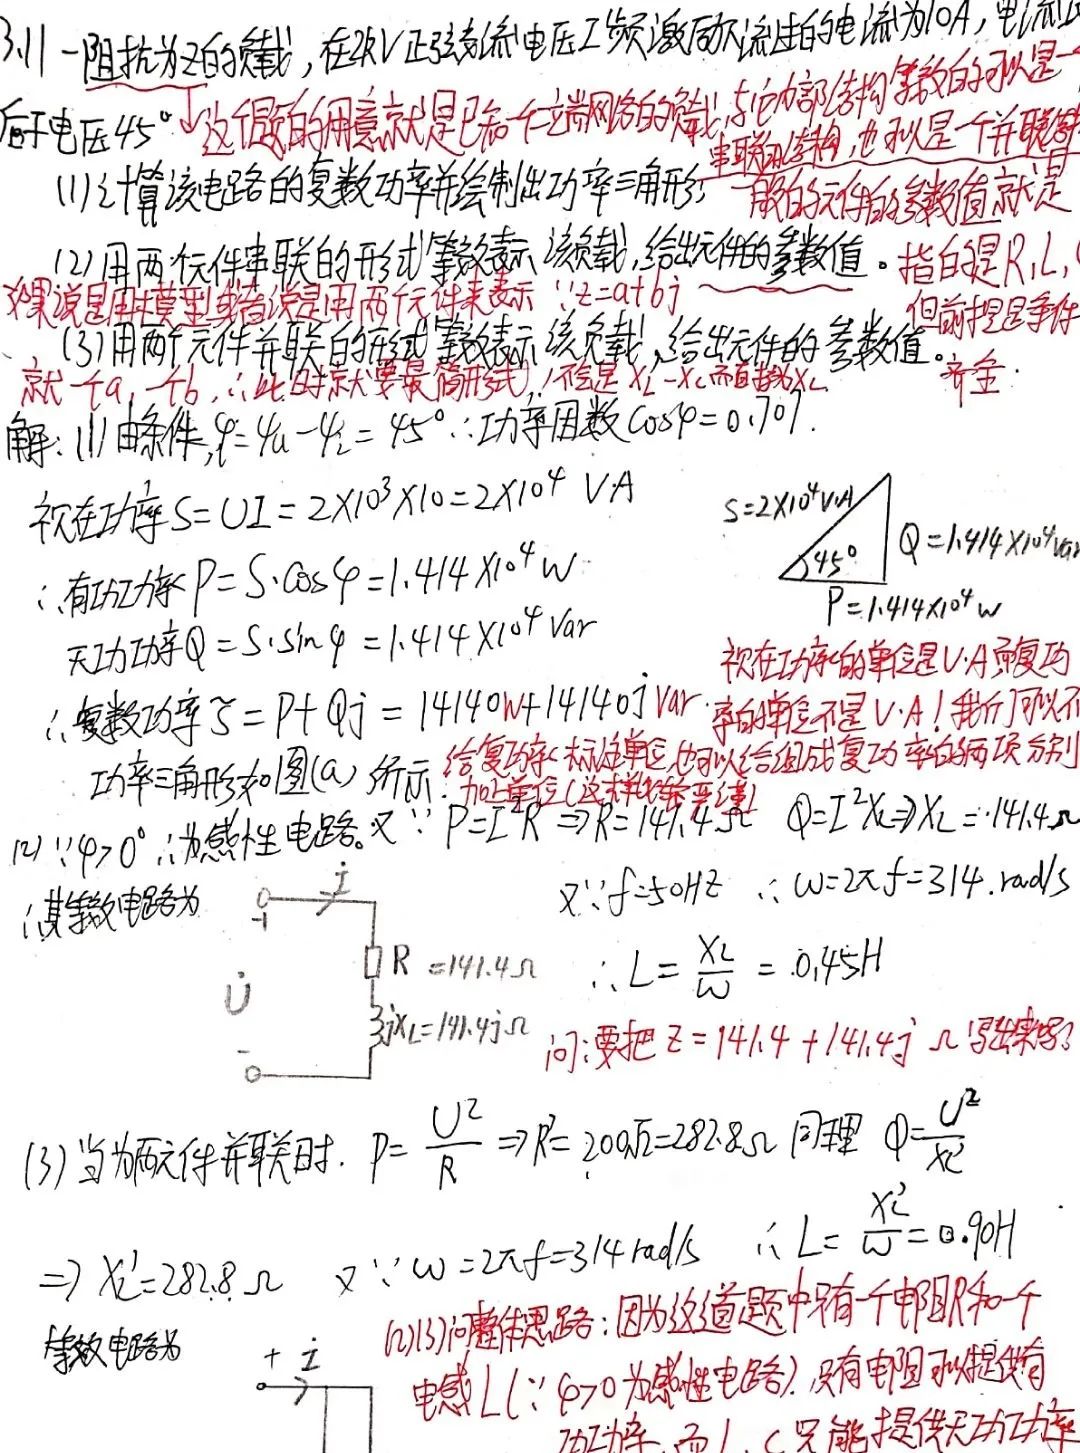 3.11 一阻抗为Z的负载，在2kV正弦交流电压工频激励下流过的电流为10A，电流
后于电压45°
这个题的用意就是已知一个二端网络的负载，与它内部结构等效的可以是一
串联的结构，也可以是一个并联
(1)计算该电路的复数功率并绘制出功率三角形；
般的元件的参数值就是
(2)用两个元件串联的形式等效表示该负载，给出元件的参数值。
指的是R,L,
如果说是用模型或者说是用两个元件来表示 ∵Z=a+bj
但前提是事件
(3)用两个元件并联的形式等效表示该负载，给出元件的参数值。
就一个a,一个b,∴此时就要最简形式,不会是XL-Xc而直接为XL
齐全.
解:(1)由条件,φ=φu-φi=45°∴功率因数cosφ=0.707.
视在功率S=UI=2×10³×10=2×10⁴ V·A
S=2×10⁴V·A
45°
Q=1.414×10⁴var
P=1.414×10⁴w
∴有功功率P=S·cosφ=1.414×10⁴w
无功功率Q=S·sinφ=1.414×10⁴Var
视在功率的单位是V·A而复功
∴复数功率S̃=P+Qj=14140w+14140jVar.
率的单位不是V·A!我们可以不
功率三角形如图(a)所示.
给复功率标注单位,也可以给组成复功率的两项分别
加上单位(这样比较严谨)
(2)∵φ>0°∴为感性电路。又∵P=I²R⇒R=141.4Ω Q=I²XL⇒XL=141.4Ω
∴其等效电路为
İ
+
U̇
-
R=141.4Ω
jXL=141.4jΩ
又∵f=50HZ ∴ω=2πf=314.rad/s
∴L=XL/ω=0.45H
问:要把Z=141.4+141.4jΩ写出来吗?
(3)当为两元件并联时.P=U²/R⇒R'=200√2=282.8Ω 同理 Q=U²/XL'
⇒XL'=282.8Ω 又∵ω=2πf=314rad/s ∴L=XL'/ω=0.90H
等效电路为
+ İ
(2)(3)问整体思路:因为这道题中只有一个电阻R和一个
电感L(∵φ>0为感性电路),只有电阻可以提供有
功功率,而L、C只能提供无功功率